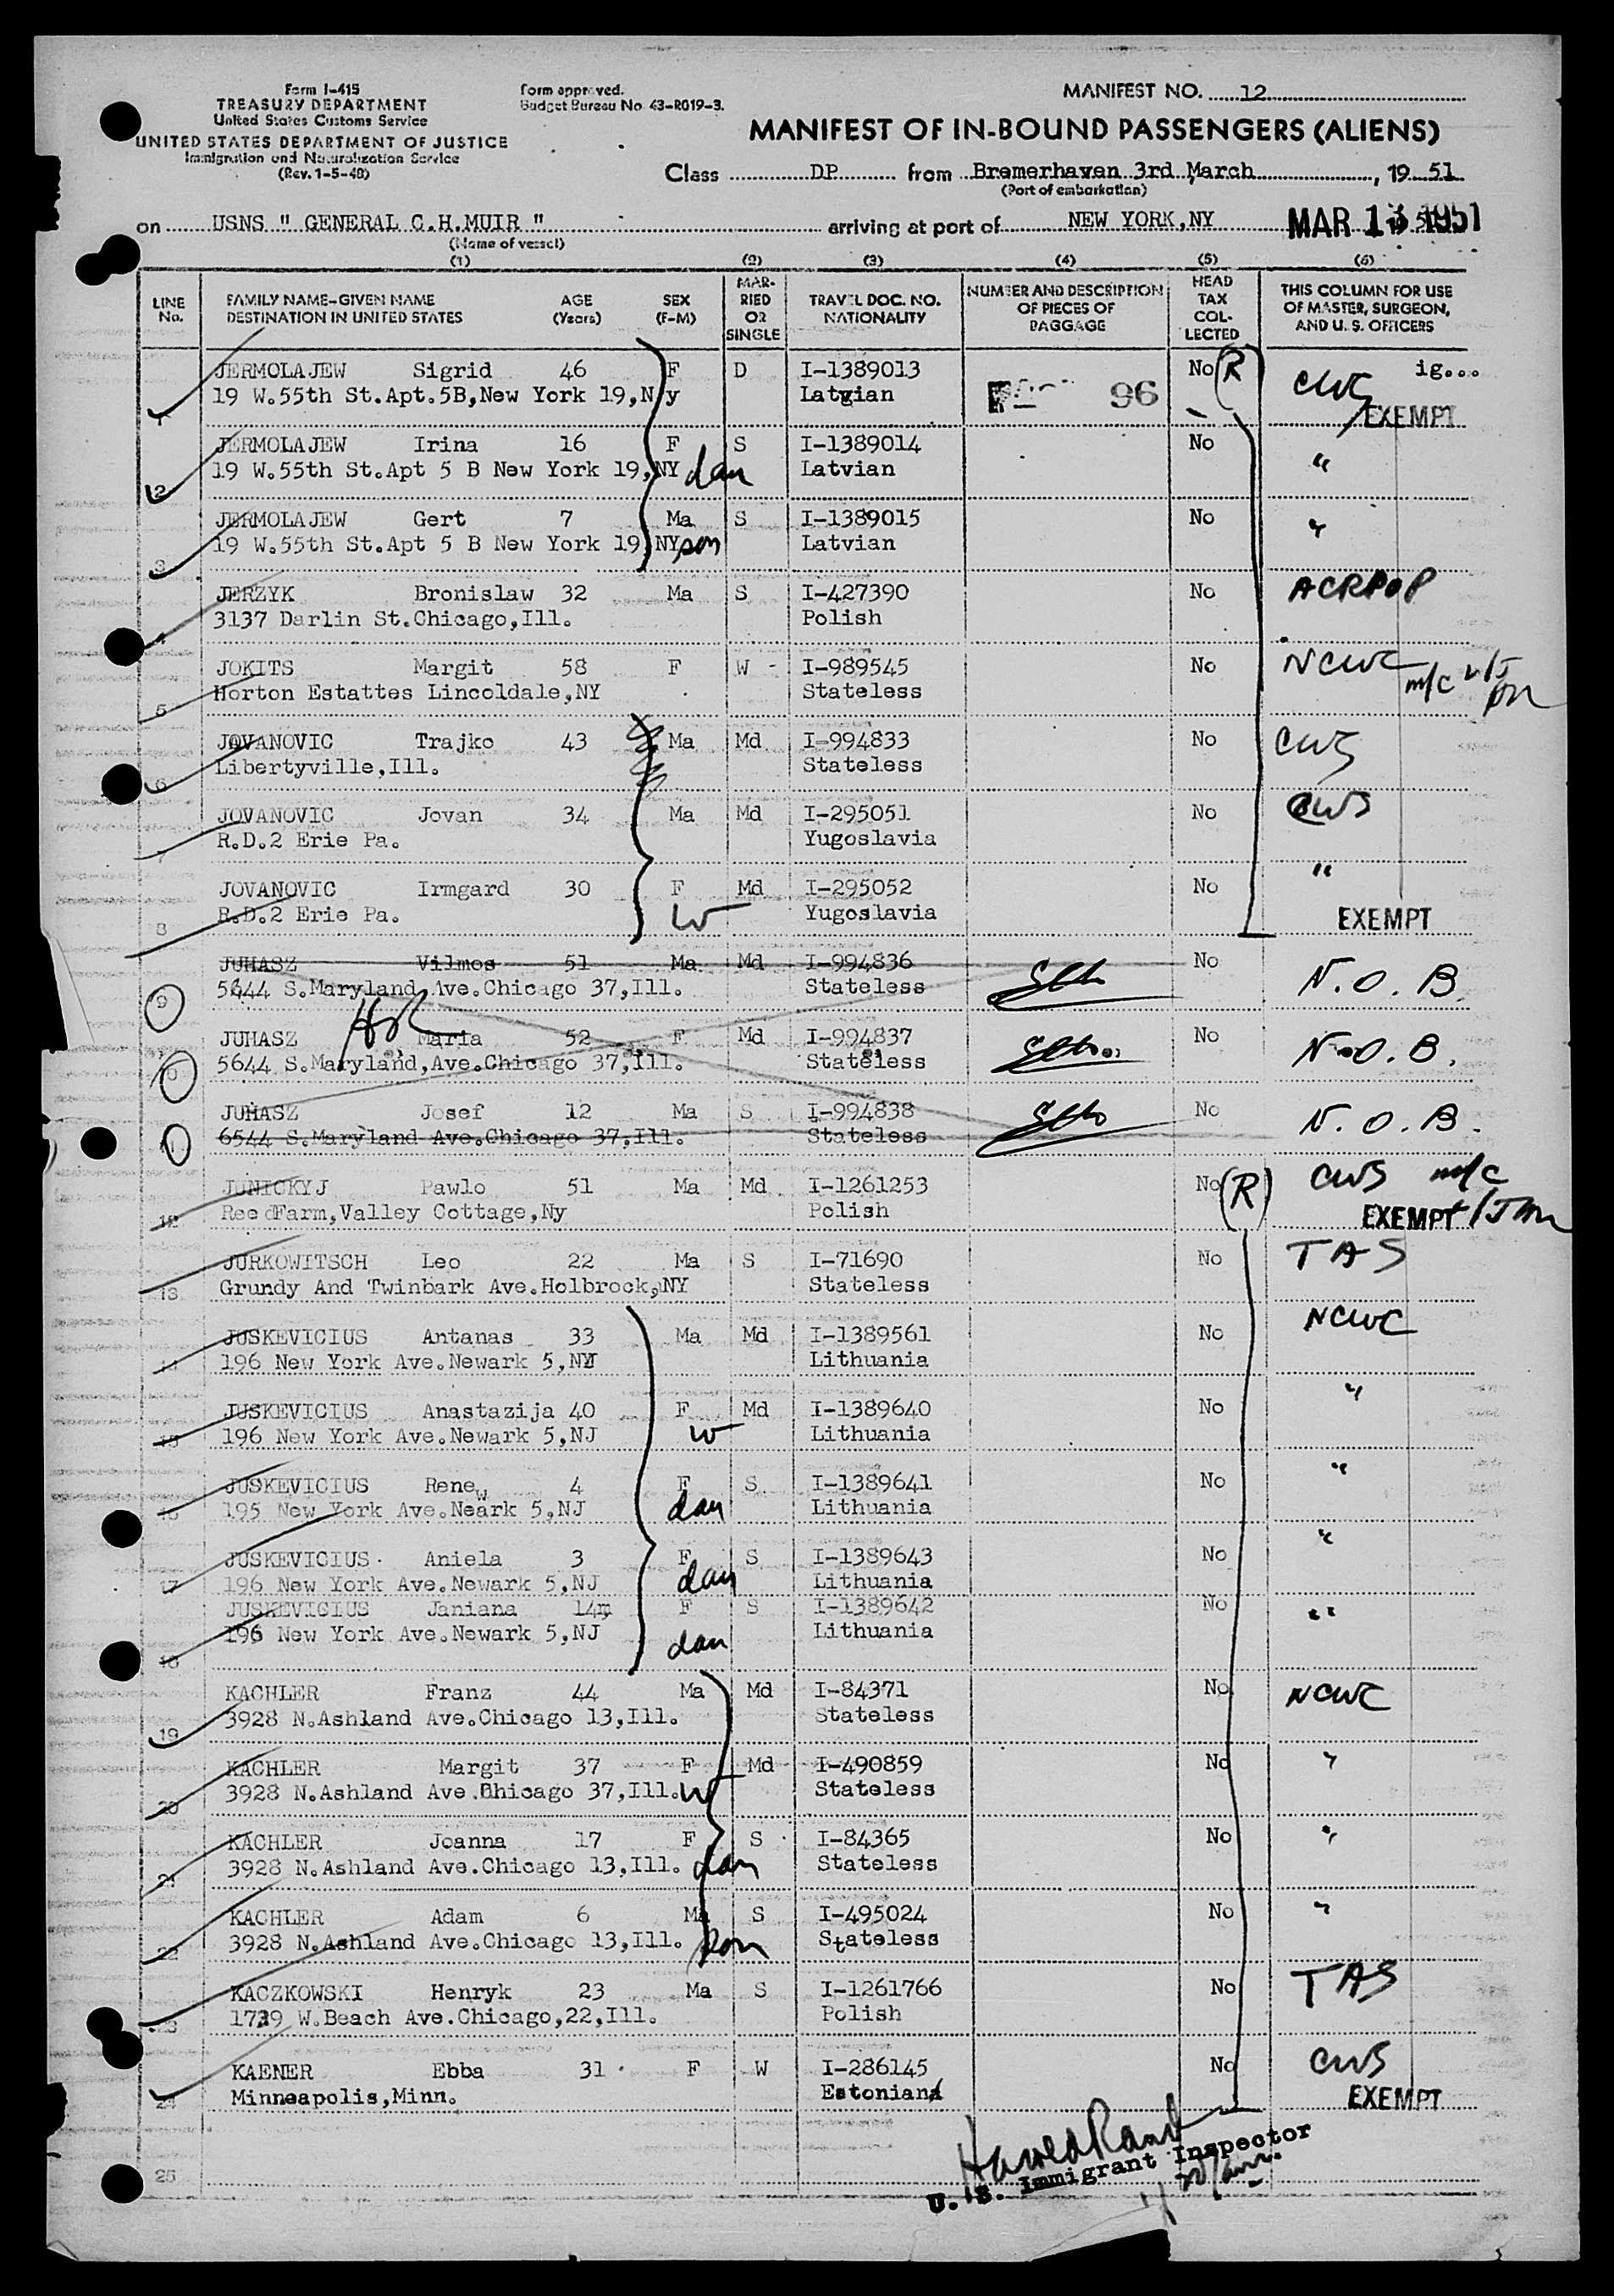 Form I-415
TREASURY DEPARTMENT
United States Customs Service
UNITED STATES DEPARTMENT OF JUSTICE
Immigration and Naturalization Service
(Rev. 1-5-48)
Form approved.
Budget Bureau No. 43-R019-3.
MANIFEST NO. 12
MANIFEST OF IN-BOUND PASSENGERS (ALIENS)
Class DP from Bremerhaven 3rd March, 19 51
(Port of embarkation)
on USNS " GENERAL C.H.MUIR " arriving at port of NEW YORK,NY MAR 13 1951
(Name of vessel)
(1) (2) (3) (4) (5) (6)
LINE No. FAMILY NAME-GIVEN NAME DESTINATION IN UNITED STATES AGE (Years) SEX (F-M) MARRIED OR SINGLE TRAVEL DOC. NO. NATIONALITY NUMBER AND DESCRIPTION OF PIECES OF BAGGAGE HEAD TAX COLLECTED THIS COLUMN FOR USE OF MASTER, SURGEON, AND U. S. OFFICERS
JERMOLAJEW Sigrid 46 F D I-1389013 No (R) CWS ig...
1 19 W.55th St.Apt.5B,New York 19,Ny Latvian 96 EXEMPT
JERMOLAJEW Irina 16 F S I-1389014 No "
2 19 W.55th St.Apt 5 B New York 19,NY dau Latvian
JERMOLAJEW Gert 7 Ma S I-1389015 No "
3 19 W.55th St.Apt 5 B New York 19,NY son Latvian
JERZYK Bronislaw 32 Ma S I-427390 No ACRPOP
4 3137 Darlin St.Chicago,Ill. Polish
JOKITS Margit 58 F W - I-989545 No NCWC m/c
5 Horton Estattes Lincoldale,NY Stateless
JOVANOVIC Trajko 43 Ma Md I-994833 No CWS
6 Libertyville,Ill. Stateless
JOVANOVIC Jovan 34 Ma Md I-295051 No CWS
7 R.D.2 Erie Pa. Yugoslavia
JOVANOVIC Irmgard 30 F Md I-295052 No "
8 R.D.2 Erie Pa. W Yugoslavia EXEMPT
JUHASZ Vilmos 51 Ma Md I-994836 No N.O.B.
9 5644 S.Maryland Ave.Chicago 37,Ill. Stateless
JUHASZ Maria 52 F Md I-994837 No N.O.B.
10 5644 S.Maryland,Ave.Chicago 37,Ill. Stateless
JUHASZ Josef 12 Ma S I-994838 No N.O.B.
11 6544 S.Maryland Ave.Chicago 37,Ill. Stateless
JUNICKYJ Pawlo 51 Ma Md I-1261253 No (R) CWS m/c
12 Reed Farm,Valley Cottage,Ny Polish EXEMPT
JURKOWITSCH Leo 22 Ma S I-71690 No TAS
13 Grundy And Twinbark Ave.Holbrock,NY Stateless
JUSKEVICIUS Antanas 33 Ma Md I-1389561 No NCWC
14 196 New York Ave.Newark 5,NJ Lithuania
JUSKEVICIUS Anastazija 40 F Md I-1389640 No "
15 196 New York Ave.Newark 5,NJ W Lithuania
JUSKEVICIUS Rene 4 F S I-1389641 No "
16 195 New York Ave.Newark 5,NJ dau Lithuania
JUSKEVICIUS Aniela 3 F S I-1389643 No "
17 196 New York Ave.Newark 5,NJ dau Lithuania
JUSKEVICIUS Janiana 14m F S I-1389642 No "
18 196 New York Ave.Newark 5,NJ dau Lithuania
KACHLER Franz 44 Ma Md I-84371 No NCWC
19 3928 N.Ashland Ave.Chicago 13,Ill. Stateless
KACHLER Margit 37 F Md I-490859 No "
20 3928 N.Ashland Ave.Chicago 37,Ill. W Stateless
KACHLER Joanna 17 F S I-84365 No "
21 3928 N.Ashland Ave.Chicago 13,Ill. dau Stateless
KACHLER Adam 6 Ma S I-495024 No "
22 3928 N.Ashland Ave.Chicago 13,Ill. son Stateless
KACZKOWSKI Henryk 23 Ma S I-1261766 No TAS
23 1739 W.Beach Ave.Chicago,22,Ill. Polish
KAENER Ebba 31 F W I-286145 No CWS
24 Minneapolis,Minn. Estonian EXEMPT
25
U. S. Immigrant Inspector